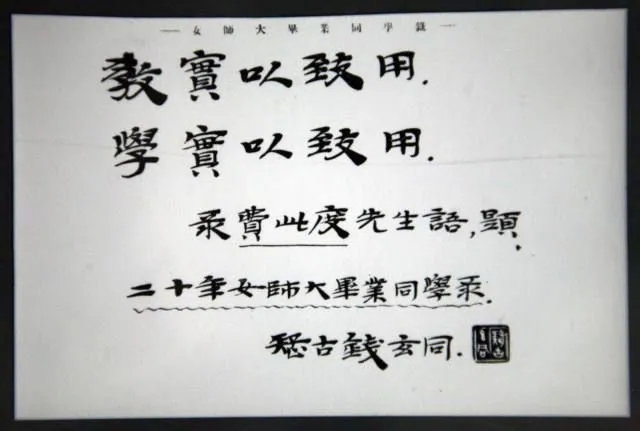 女師大畢業同學錄
教實以致用.
學實以致用.
彔費此度先生語,題
二十年女師大畢業同學彔.
疑古錢玄同.